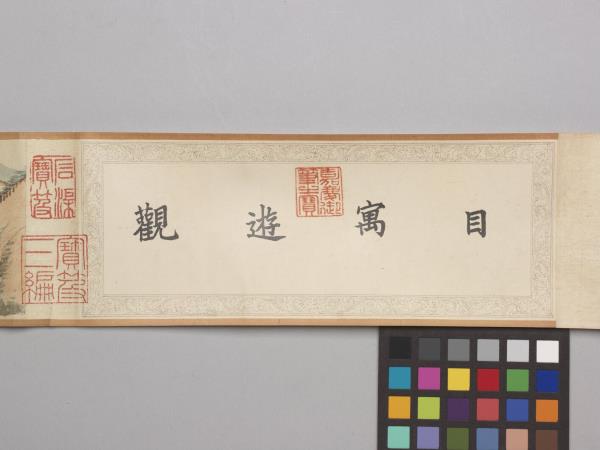 目寓遊觀
嘉慶御筆之寶
石渠寶笈
寶笈三編